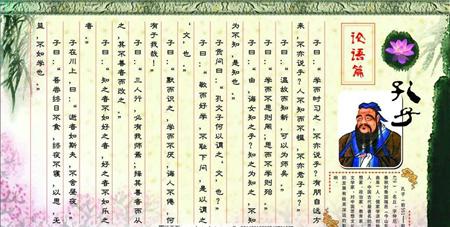 论语篇
孔子
子曰:“学而时习之,不亦说乎?有朋自远方
来,不亦乐乎?人不知而不愠,不亦君子乎?”
子曰:“温故而知新,可以为师矣。”
子曰:“学而不思则罔,思而不学则殆。”
子曰:“由,诲女知之乎?知之为知之,不知
为不知,是知也。”
子贡问曰:“孔文子何以谓之‘文’也?”
子曰:“敏而好学,不耻下问,是以谓之
‘文’也。”
子曰:“默而识之,学而不厌,诲人不倦,何
有于我哉!”
子曰:“三人行,必有我师焉;择其善者而从
之,其不善者而改之。”
子曰:“知之者不如好之者,好之者不如乐之
者。”
子在川上曰:“逝者如斯夫,不舍昼夜。”
子曰:“吾尝终日不食,终夜不寝,以思,无
益,不如学也。”